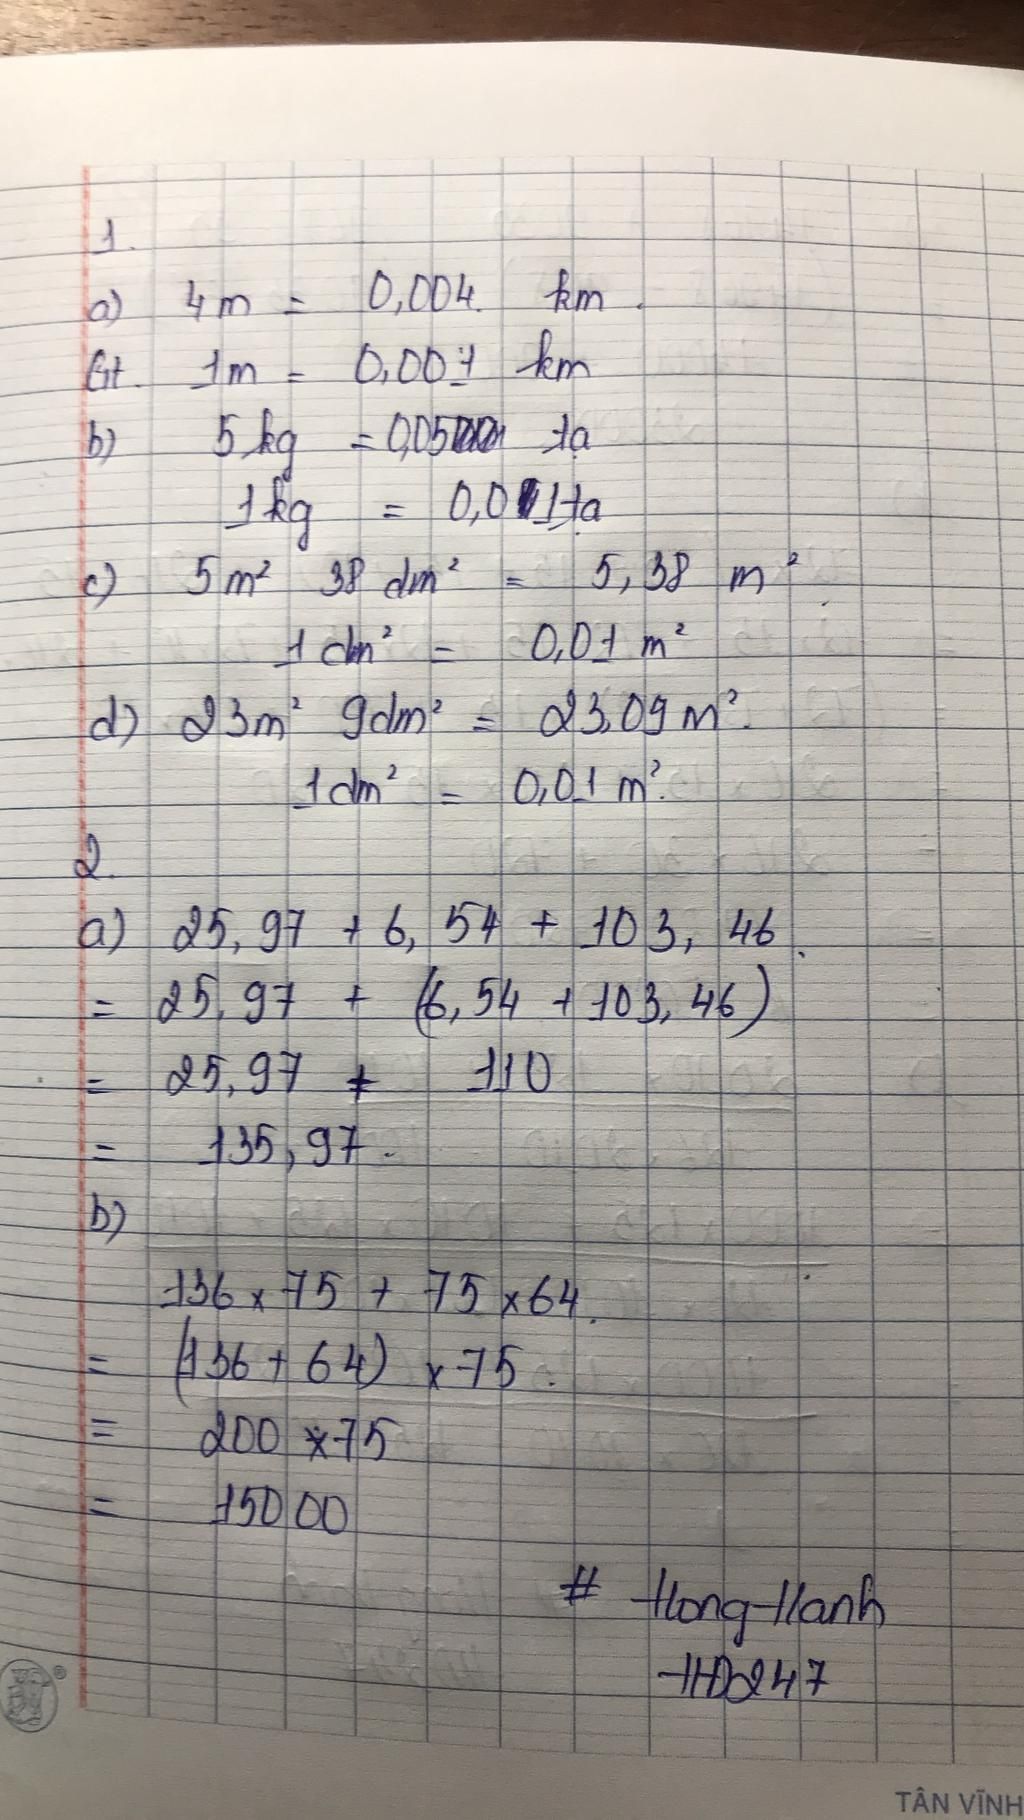 1.
a) 4m = 0,004 km.
Gt. 1m = 0,001 km
b) 5kg = 0,05 tạ
1kg = 0,01 tạ
c) 5m² 38 dm² = 5,38 m²
1 dm² = 0,01 m²
d) 23m² 9dm² = 23,09 m².
1dm² = 0,01 m².
2.
a) 25,97 + 6,54 + 103,46
= 25,97 + (6,54 + 103,46)
= 25,97 + 110
= 135,97.
b)
136 x 75 + 75 x 64.
= (136 + 64) x 75.
= 200 x 75
= 15000
# Hong Hanh
HD247
TÂN VĨNH